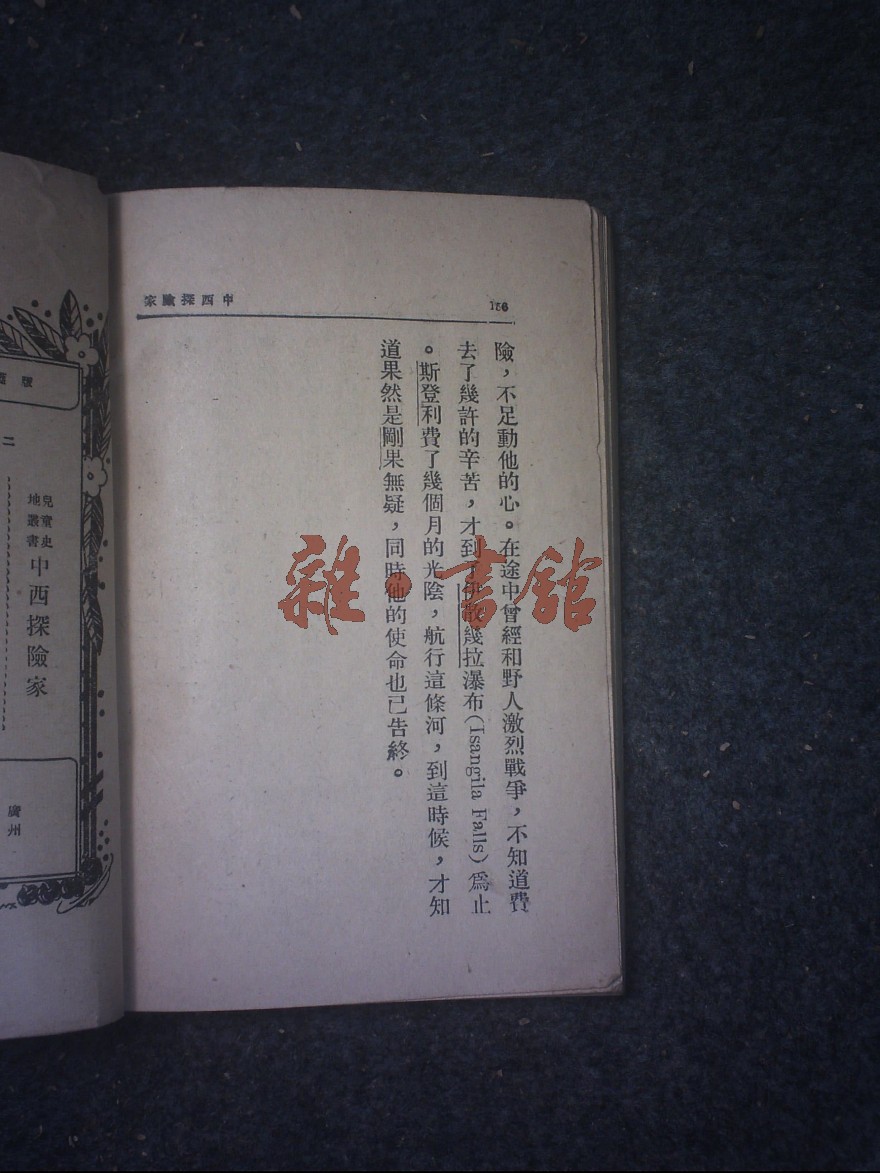 中西探險家
156
險，不足動他的心。在途中曾經和野人激烈戰爭，不知道費
去了幾許的辛苦，才到了伊散幾拉瀑布(Isangila Falls)為止
。斯登利費了幾個月的光陰，航行這條河，到這時候，才知
道果然是剛果無疑，同時他的使命也已告終。
雜·書館
版
二
兒童史
地叢書
中西探險家
廣州